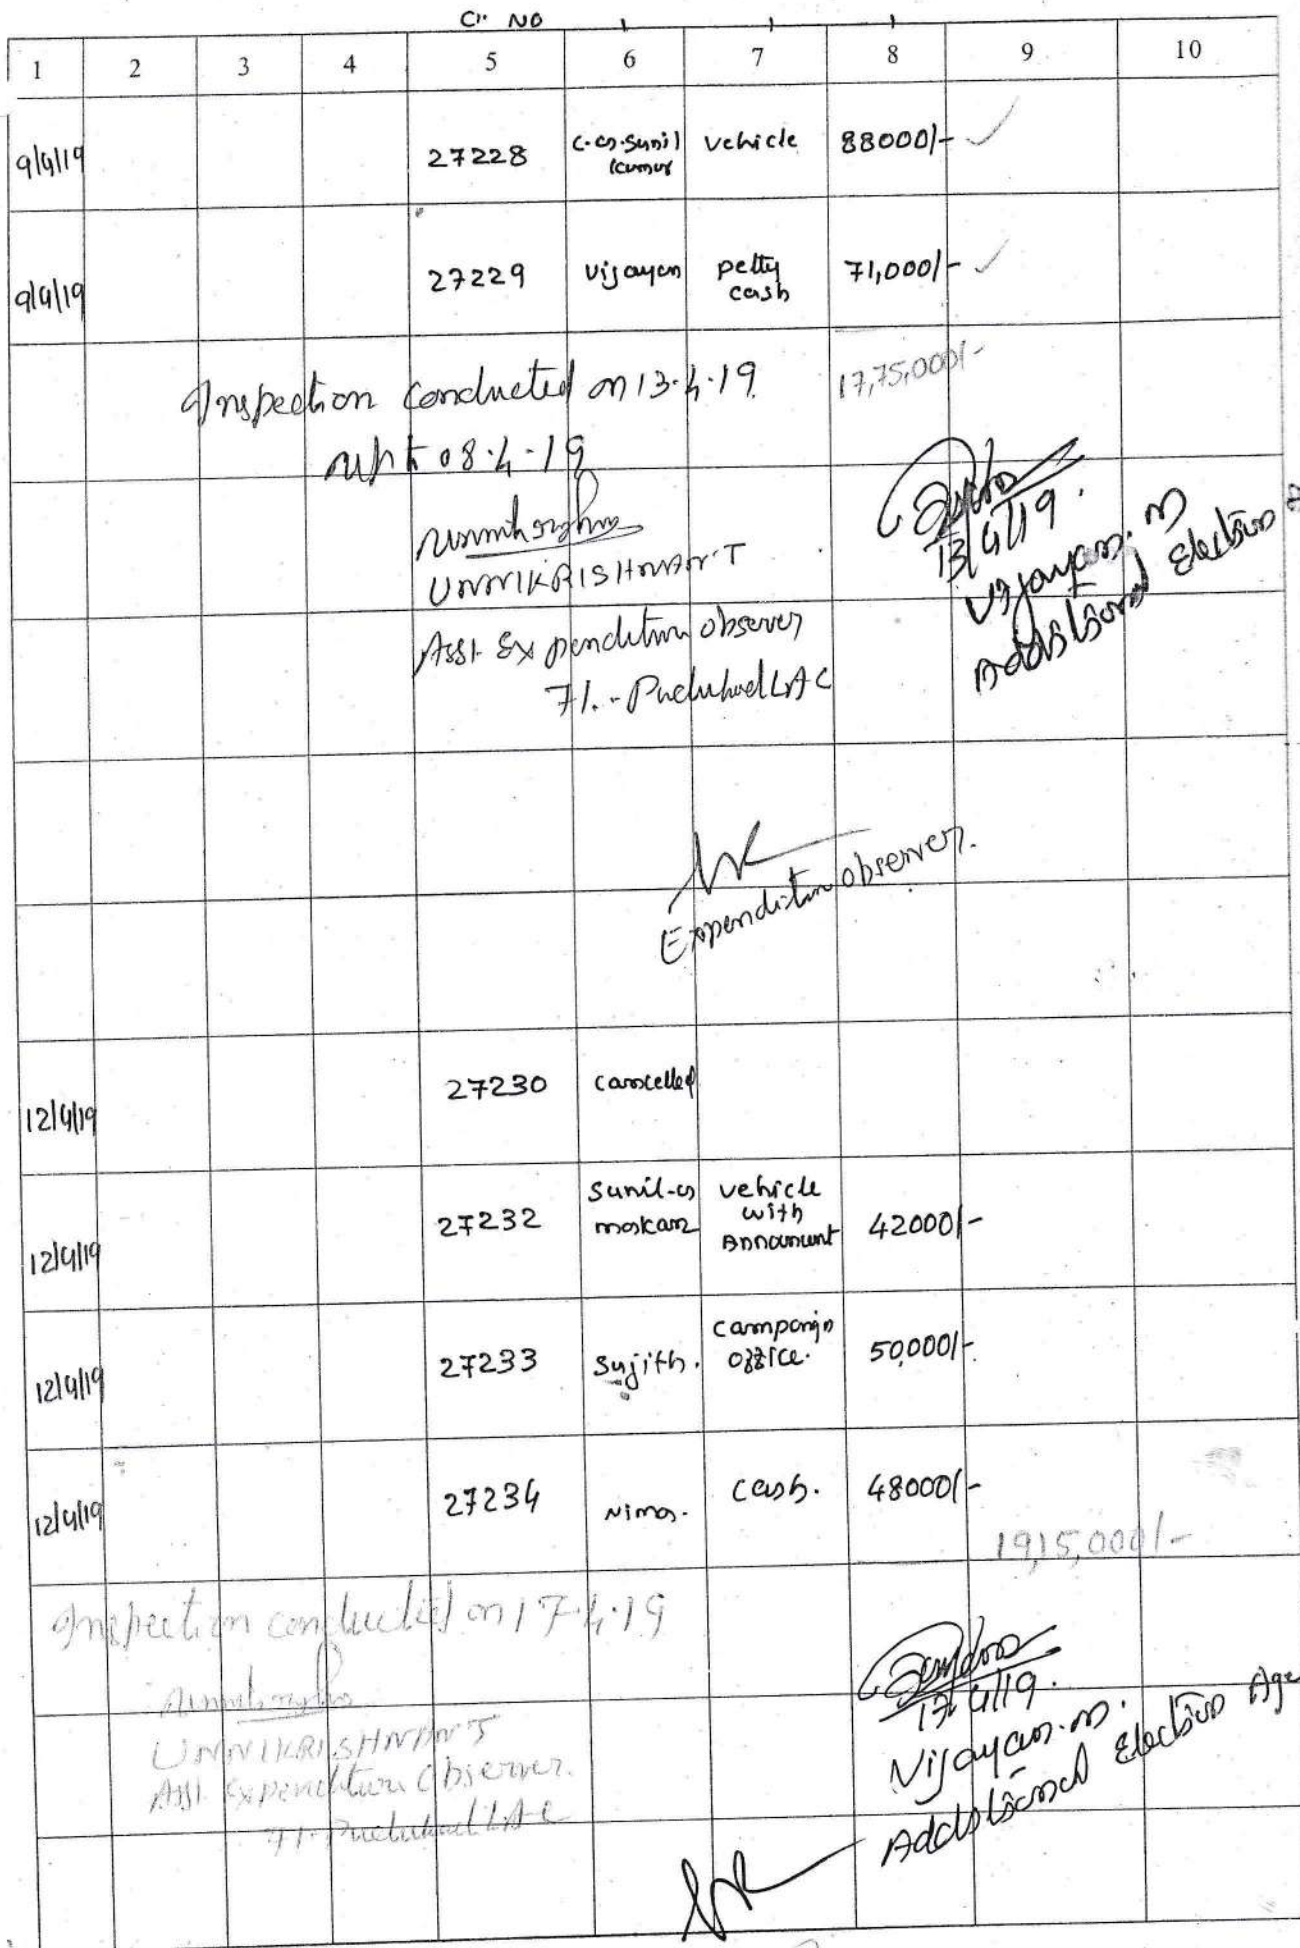 Cr. NO
1 2 3 4 5 6 7 8 9 10
9/4/19 27228 C.N. Sunil Kumar vehicle 88000/-
9/4/19 27229 Vijayan petty cash 71,000/-
17,75,000/-
Inspection conducted on 13.4.19
upto 08.4.19
UNNIKRISHNAN T
Asst Expenditure observer
71. - LAC
13/4/19.
Vijayan. M
Additional Election
Expenditure observer.
12/4/19 27230 cancelled
12/4/19 27232 Sunil-N vehicle with Announment 42000/-
12/4/19 27233 Sujith. campaign office. 50,000/-
12/4/19 27234 cash. 48000/-
19,15,000/-
Inspection conducted on 17.4.19
UNNIKRISHNAN T
Asst Expenditure Observer.
71. LAC
17/4/19.
Vijayan. M.
Additional Election Age